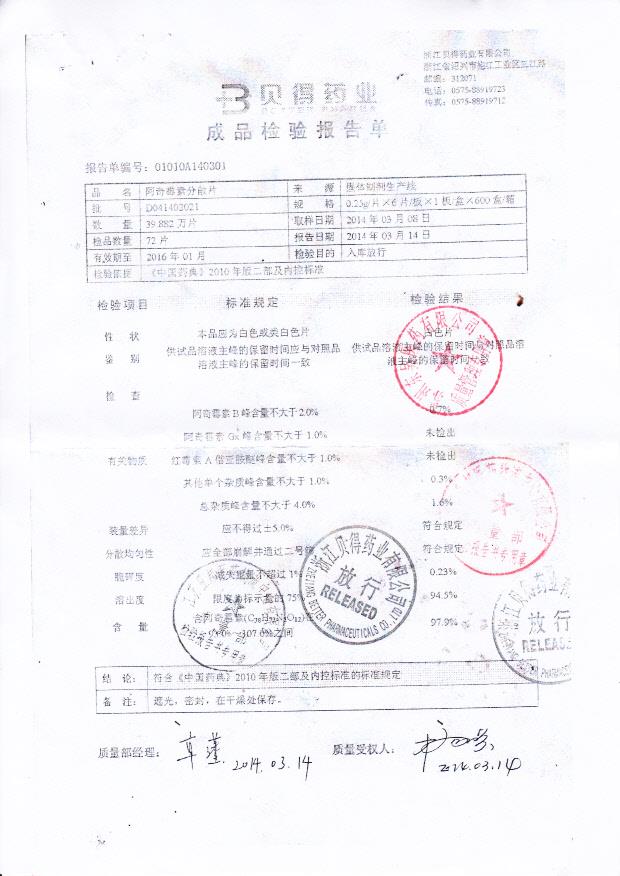 浙江贝得药业有限公司
浙江省绍兴市袍江工业区三江路
邮编：312071
电话：0575-88919723
传真：0575-88919712
贝得药业
BETTER PHARMA
成品检验报告单
报告单编号：01010A140301
品 名 阿奇霉素分散片 来 源 固体制剂生产线
批 号 D041402021 规 格 0.25g/片×6片/板×1板/盒×600盒/箱
数 量 39.882万片 取样日期 2014年03月08日
检品数量 72片 报告日期 2014年03月14日
有效期至 2016年01月 检验目的 入库放行
检验依据 《中国药典》2010年版二部及内控标准
检验项目 标准规定 检验结果
性 状 本品应为白色或类白色片 白色片
鉴 别 供试品溶液主峰的保留时间应与对照品 供试品溶液主峰的保留时间与对照品溶
溶液主峰的保留时间一致 液主峰的保留时间一致
检 查
阿奇霉素B峰含量不大于2.0% 0.7%
阿奇霉素 峰含量不大于1.0% 未检出
有关物质 红霉素A偕亚胺醚峰含量不大于1.0% 未检出
其他单个杂质峰含量不大于1.0% 0.3%
总杂质峰含量不大于4.0% 1.6%
装量差异 应不得过±5.0% 符合规定
分散均匀性 应全部崩解并通过二号筛 符合规定
脆碎度 减失重量不超过1% 0.23%
溶出度 限度为标示量的75% 94.5%
含 量 含阿奇霉素 97.9%
107.0%之间
浙江贝得药业有限公司
放行
RELEASED
ZHEJIANG BETTER PHARMACEUTICALS CO., LTD
放行
RELEASED
结 论： 符合《中国药典》2010年版二部及内控标准的标准规定
备 注： 遮光，密封，在干燥处保存。
质量部经理： 2014.03.14 质量受权人： 2014.03.14